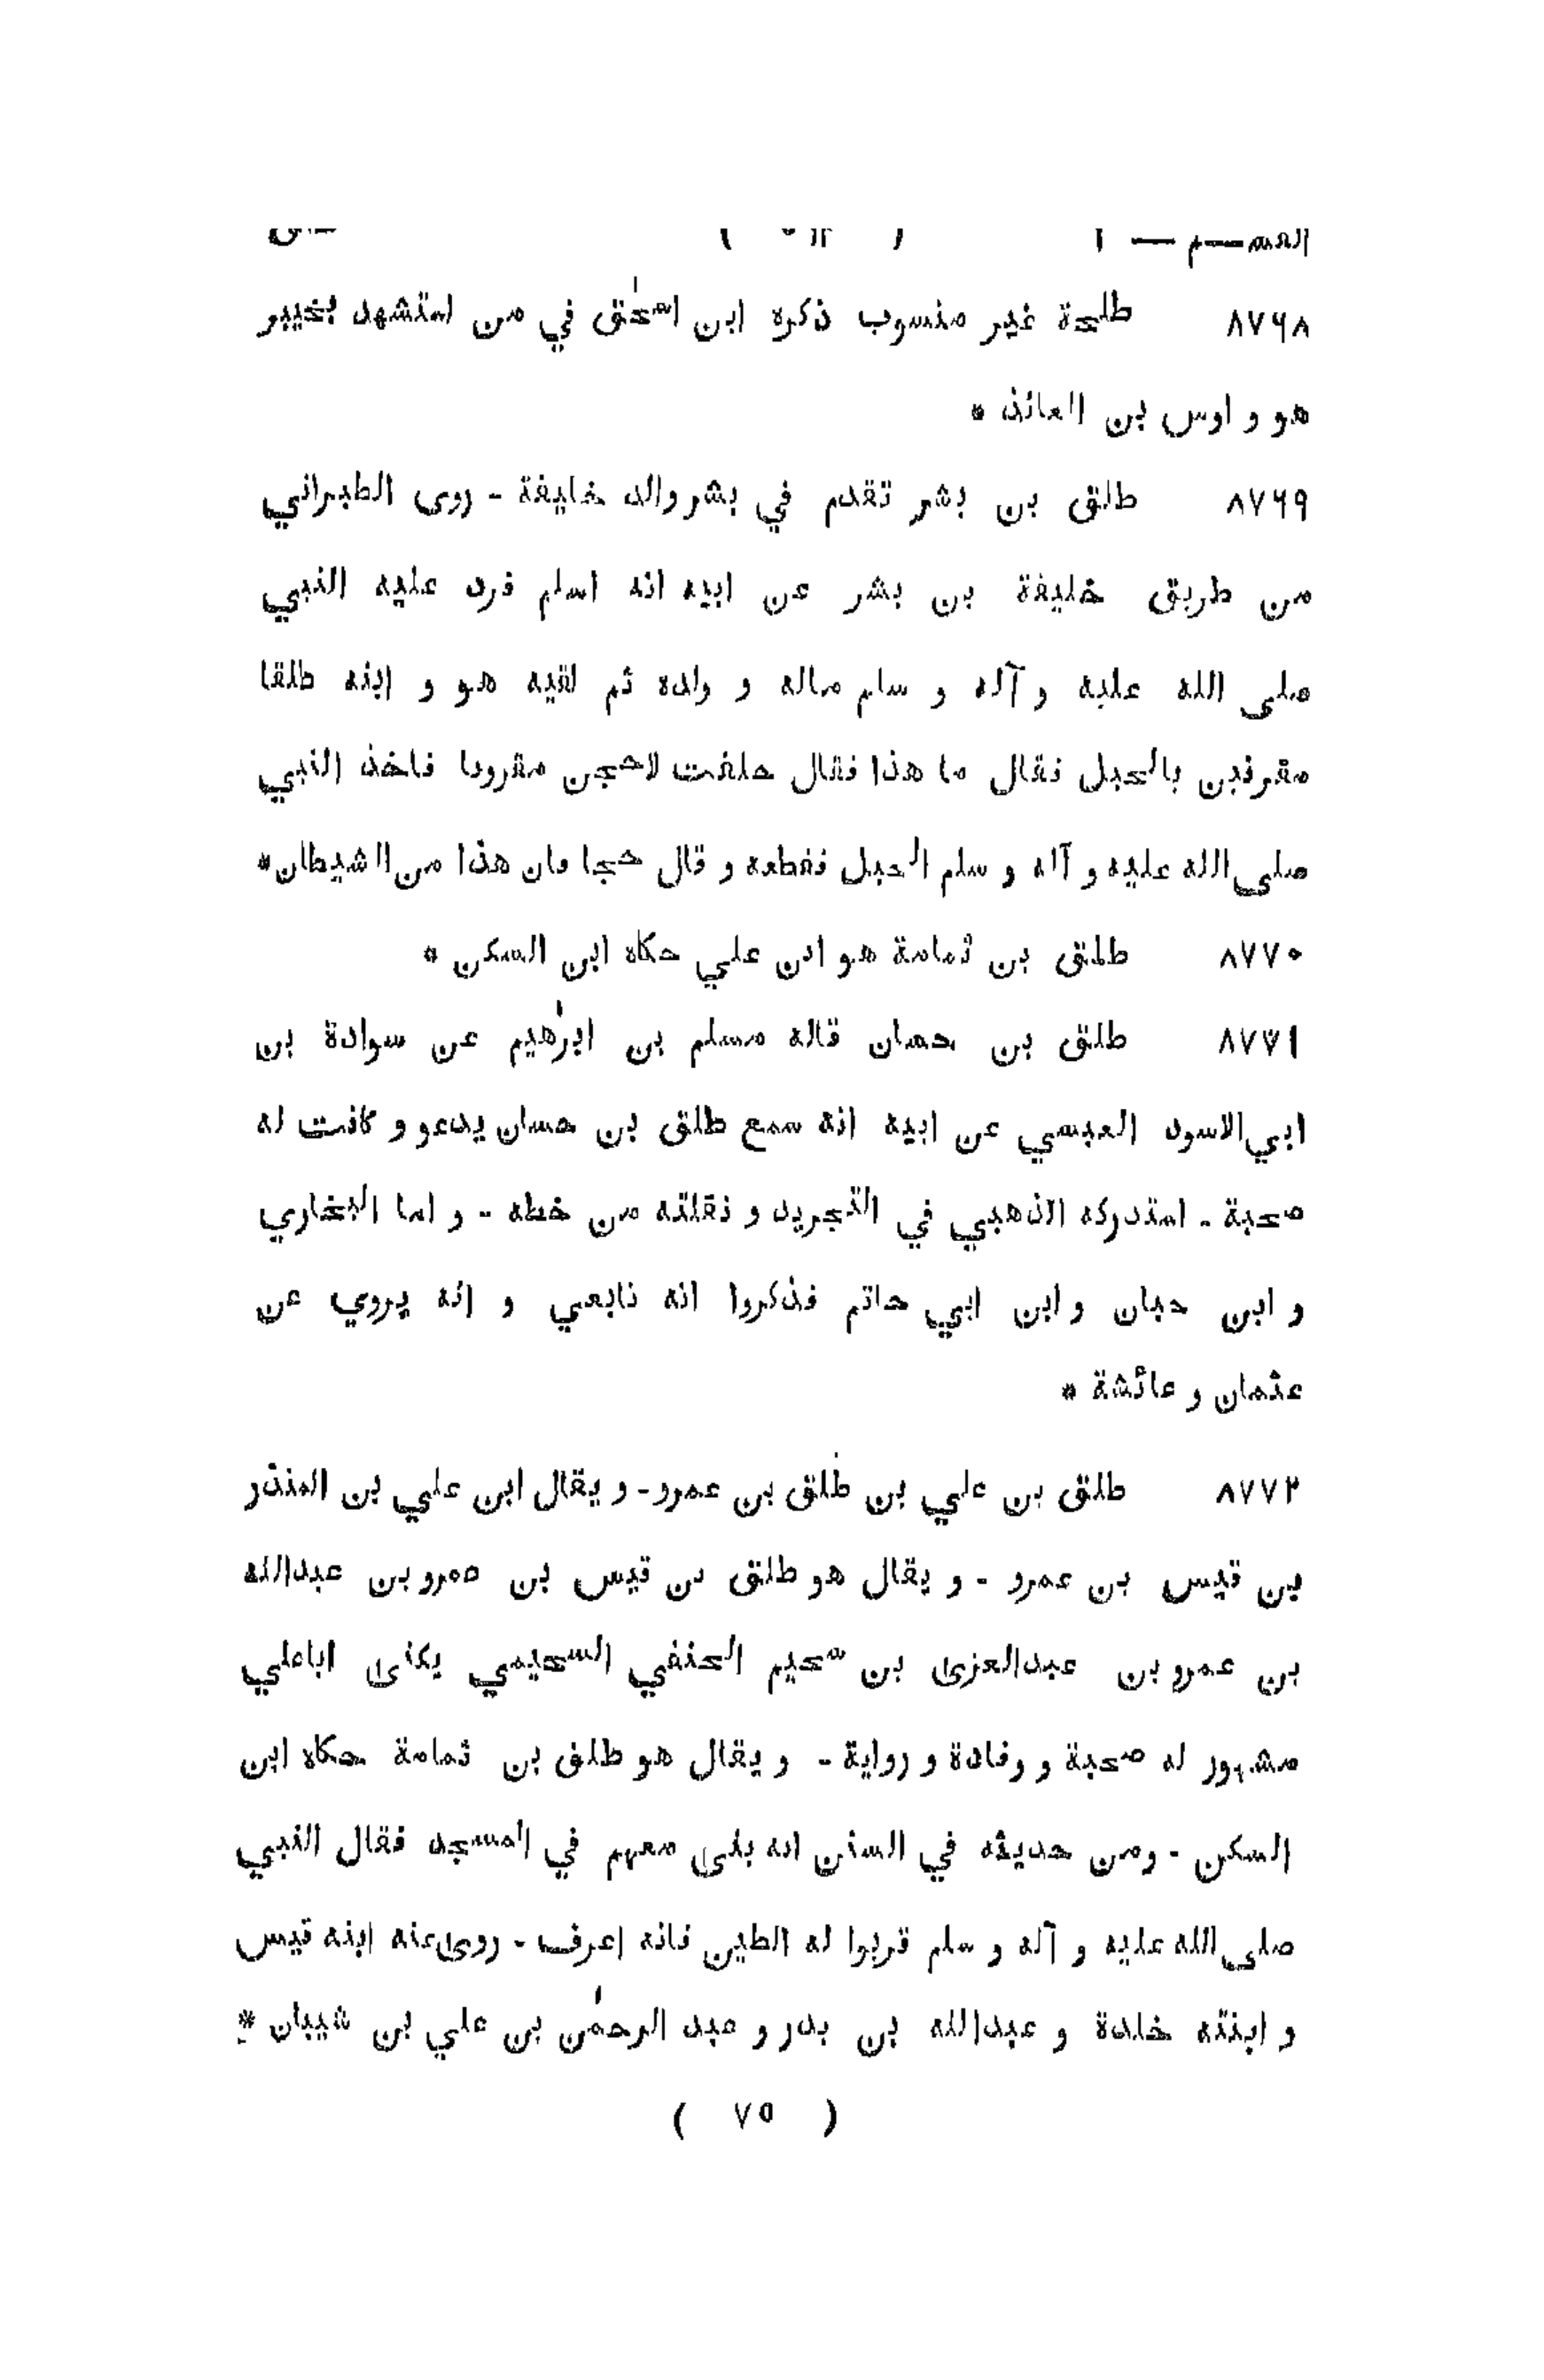 القســم — ١
٨٧٦٨ طلحة غير منسوب ذكره ابن اسحٰق في من استشهد بخيبر
هو و اوس بن العائذ *
٨٧٦٩ طلق بن بشر تقدم في بشر والد خليفة - روى الطبراني
من طريق خليفة بن بشر عن ابيه انه اسلم فرد عليه النبي
صلى الله عليه و آله و سلم ماله و ولده ثم لقيه هو و ابنه طلقا
مقرنين بالحبل فقال ما هذا فقال حلفت لاحجن مقرونا فاخذ النبي
صلى الله عليه و آله و سلم الحبل فقطعه و قال حجا فان هذا من الشيطان*
٨٧٧٠ طلق بن ثمامة هو ابن علي حكاه ابن السكن *
٨٧٧١ طلق بن حسان قاله مسلم بن ابرٰهيم عن سوادة بن
ابي الاسود العبسي عن ابيه انه سمع طلق بن حسان يدعو و كانت له
صحبة - استدركه الذهبي في التجريد و نقلته من خطه - و اما البخاري
و ابن حبان و ابن ابي حاتم فذكروا انه تابعي و انه يروي عن
عثمان و عائشة *
٨٧٧٢ طلق بن علي بن طلق بن عمرو - و يقال ابن علي بن المنذر
بن قيس بن عمرو - و يقال هو طلق بن قيس بن عمرو بن عبدالله
بن عمرو بن عبدالعزى بن سحيم الحنفي السحيمي يكنى اباعلي
مشهور له صحبة و وفادة و رواية - و يقال هو طلق بن ثمامة حكاه ابن
السكن - ومن حديثه في السنن انه بنى معهم في المسجد فقال النبي
صلى الله عليه و آله و سلم قربوا له الطين فانه اعرف - روى عنه ابنه قيس
و ابنته خلدة و عبدالله بن بدر و عبد الرحمٰن بن علي بن شيبان *
( ٧٥ )